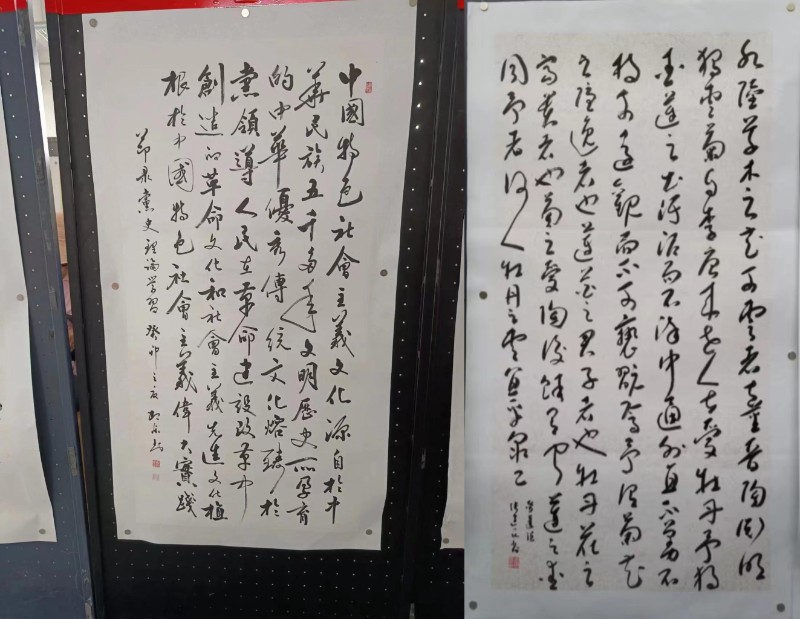 中國特色社會主義文化源自於中
華民族五千多年文明歷史所孕育
的中華優秀傳統文化熔鑄於
黨領導人民在革命建設改革中
創造的革命文化和社會主義先進文化植
根於中國特色社會主義偉大實踐
節錄黨史理論學習 癸卯之夏 書
水陸草木之花可愛者甚蕃晉陶淵明
獨愛菊自李唐來世人甚愛牡丹予獨
愛蓮之出淤泥而不染中通外直不蔓不
枝可遠觀而不可褻翫焉予謂菊花
之隱逸者也蓮花之君子者也牡丹花之
富貴者也菊之愛陶後鮮有聞蓮之愛
同予者何人牡丹之愛宜乎眾矣
愛蓮說